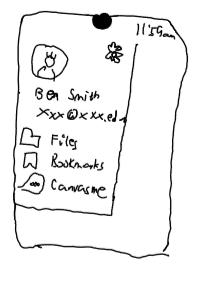 11:59am
Ben Smith
Xxx@xxx.ed
Files
Bookmarks
Canvasme